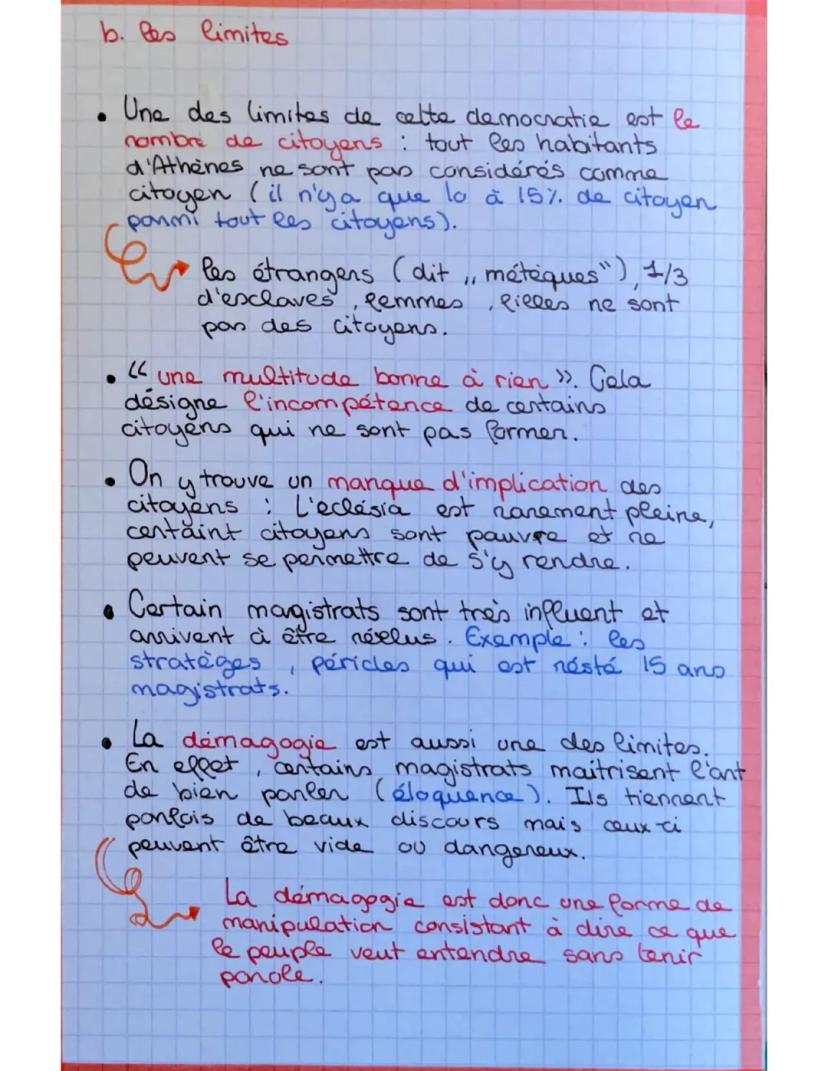 b. les limites
• Une des limites de cette democratie est le
nombre de citoyens : tout les habitants
d'Athènes ne sont pas considérés comme
citoyen (il n'y a que 10 à 15% de citoyen
parmi tout les citoyens).
les étrangers (dit „métèques"), 1/3
d'esclaves, femmes, filles ne sont
pas des citoyens.
• « une multitude bonne à rien ». Cela
désigne l'incompétence de certains
citoyens qui ne sont pas former.
• On y trouve un manque d'implication des
citoyens : L'eclésia est rarement pleine,
certaint citoyens sont pauvre et ne
peuvent se permettre de s'y rendre.
• Certain magistrats sont très influent et
arrivent à être réelus. Exemple : les
stratèges, péricles qui est résté 15 ans
magistrats.
• La démagogie est aussi une des limites.
En effet, certains magistrats maitrisent l'art
de bien parler (éloquence). Ils tiennent
parfois de beaux discours mais ceux-ci
peuvent être vide ou dangereux.
La démagogie est donc une forme de
manipulation consistant à dire ce que
le peuple veut entendre sans tenir
parole.